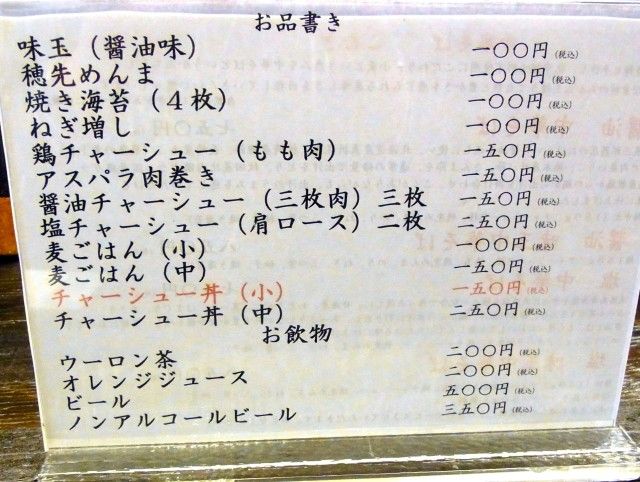 お品書き
味玉（醤油味） 一〇〇円（税込）
穂先めんま 一〇〇円（税込）
焼き海苔（４枚） 一〇〇円（税込）
ねぎ増し 一〇〇円（税込）
鶏チャーシュー（もも肉） 一五〇円（税込）
アスパラ肉巻き 一五〇円（税込）
醤油チャーシュー（三枚肉）三枚 一五〇円（税込）
塩チャーシュー（肩ロース）二枚 二五〇円（税込）
麦ごはん（小） 一〇〇円（税込）
麦ごはん（中） 一五〇円（税込）
チャーシュー丼（小） 一五〇円（税込）
チャーシュー丼（中） 二五〇円（税込）
お飲物
ウーロン茶 二〇〇円（税込）
オレンジジュース 二〇〇円（税込）
ビール 五〇〇円（税込）
ノンアルコールビール 三五〇円（税込）